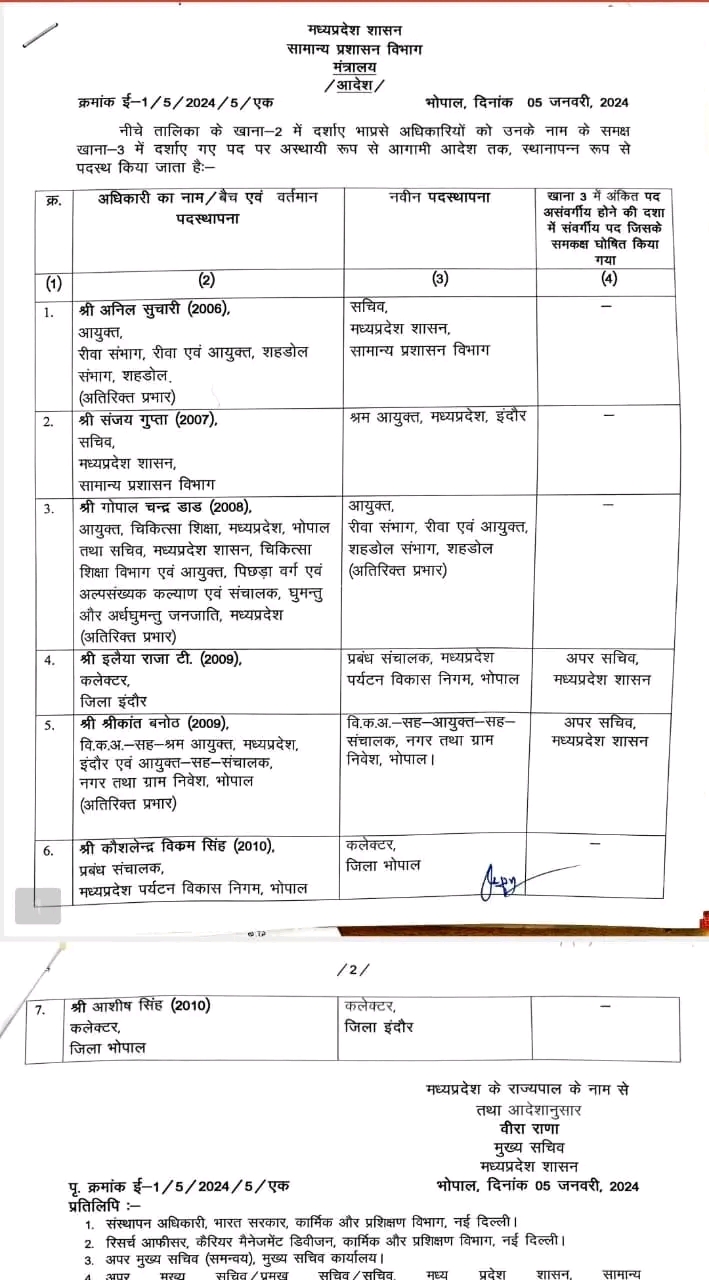 मध्यप्रदेश शासन
सामान्य प्रशासन विभाग
मंत्रालय
/आदेश/
क्रमांक ई–1/5/2024/5/एक
भोपाल, दिनांक 05 जनवरी, 2024
नीचे तालिका के खाना–2 में दर्शाए भाप्रसे अधिकारियों को उनके नाम के समक्ष
खाना–3 में दर्शाए गए पद पर अस्थायी रूप से आगामी आदेश तक, स्थानापन्न रूप से
पदस्थ किया जाता हैः–
क्र.
अधिकारी का नाम/बैच एवं वर्तमान
पदस्थापना
नवीन पदस्थापना
खाना 3 में अंकित पद
असंवर्गीय होने की दशा
में संवर्गीय पद जिसके
समकक्ष घोषित किया
गया
(1)
(2)
(3)
(4)
1.
श्री अनिल सुचारी (2006),
आयुक्त,
रीवा संभाग, रीवा एवं आयुक्त, शहडोल
संभाग, शहडोल.
(अतिरिक्त प्रभार)
सचिव,
मध्यप्रदेश शासन,
सामान्य प्रशासन विभाग
–
2.
श्री संजय गुप्ता (2007),
सचिव,
मध्यप्रदेश शासन,
सामान्य प्रशासन विभाग
श्रम आयुक्त, मध्यप्रदेश, इंदौर
–
3.
श्री गोपाल चन्द्र डाड (2008),
आयुक्त, चिकित्सा शिक्षा, मध्यप्रदेश, भोपाल
तथा सचिव, मध्यप्रदेश शासन, चिकित्सा
शिक्षा विभाग एवं आयुक्त, पिछड़ा वर्ग एवं
अल्पसंख्यक कल्याण एवं संचालक, घुमन्तु
और अर्धघुमन्तु जनजाति, मध्यप्रदेश
(अतिरिक्त प्रभार)
आयुक्त,
रीवा संभाग, रीवा एवं आयुक्त,
शहडोल संभाग, शहडोल
(अतिरिक्त प्रभार)
–
4.
श्री इलैया राजा टी. (2009),
कलेक्टर,
जिला इंदौर
प्रबंध संचालक, मध्यप्रदेश
पर्यटन विकास निगम, भोपाल
अपर सचिव,
मध्यप्रदेश शासन
5.
श्री श्रीकांत बनोठ (2009),
वि.क.अ.–सह–श्रम आयुक्त, मध्यप्रदेश,
इंदौर एवं आयुक्त–सह–संचालक,
नगर तथा ग्राम निवेश, भोपाल
(अतिरिक्त प्रभार)
वि.क.अ.–सह–आयुक्त–सह–
संचालक, नगर तथा ग्राम
निवेश, भोपाल।
अपर सचिव,
मध्यप्रदेश शासन
6.
श्री कौशलेन्द्र विकम सिंह (2010),
प्रबंध संचालक,
मध्यप्रदेश पर्यटन विकास निगम, भोपाल
कलेक्टर,
जिला भोपाल
–
/2/
7.
श्री आशीष सिंह (2010)
कलेक्टर,
जिला भोपाल
कलेक्टर,
जिला इंदौर
–
मध्यप्रदेश के राज्यपाल के नाम से
तथा आदेशानुसार
वीरा राणा
मुख्य सचिव
मध्यप्रदेश शासन
पृ. क्रमांक ई–1/5/2024/5/एक
भोपाल, दिनांक 05 जनवरी, 2024
प्रतिलिपि :–
1. संस्थापन अधिकारी, भारत सरकार, कार्मिक और प्रशिक्षण विभाग, नई दिल्ली।
2. रिसर्च आफीसर, कैरियर मैनेजमेंट डिवीजन, कार्मिक और प्रशिक्षण विभाग, नई दिल्ली।
3. अपर मुख्य सचिव (समन्वय), मुख्य सचिव कार्यालय।
4. अपर मुख्य सचिव/प्रमुख सचिव/सचिव, मध्य प्रदेश शासन, सामान्य